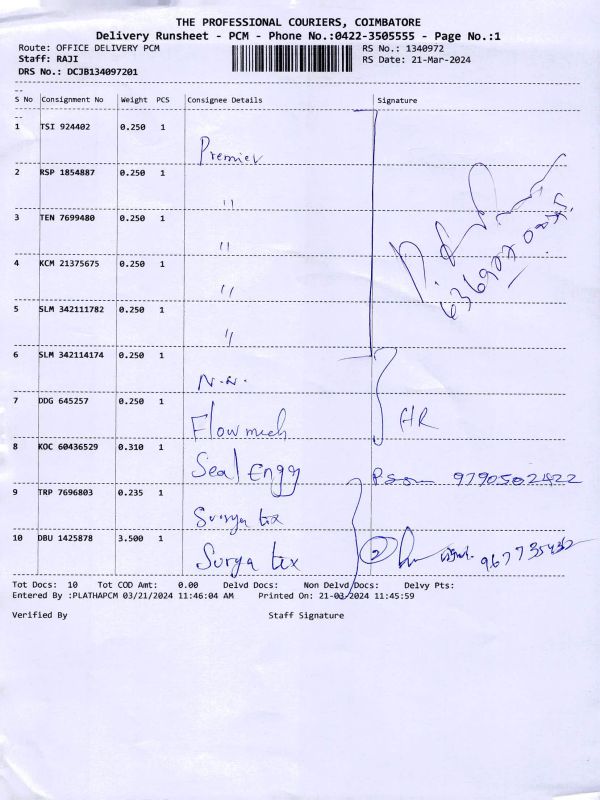 THE PROFESSIONAL COURIERS, COIMBATORE
Delivery Runsheet - PCM - Phone No.:0422-3505555 - Page No.:1
Route: OFFICE DELIVERY PCM RS No.: 1340972
Staff: RAJI RS Date: 21-Mar-2024
DRS No.: DCJB134097201
S No Consignment No Weight PCS Consignee Details Signature
1 TSI 924402 0.250 1 Premier
2 RSP 1854887 0.250 1 "
3 TEN 7699480 0.250 1 "
4 KCM 21375675 0.250 1 "
5 SLM 342111782 0.250 1 "
6 SLM 342114174 0.250 1 N.N.
7 DDG 645257 0.250 1 Flowmech HR
8 KOC 60436529 0.310 1 Seal Engg 9790502422
9 TRP 7696803 0.235 1 Surya tex
10 DBU 1425878 3.500 1 Surya tex 2
Tot Docs: 10 Tot COD Amt: 0.00 Delvd Docs: Non Delvd Docs: Delvy Pts:
Entered By :PLATHAPCM 03/21/2024 11:46:04 AM Printed On: 21-03-2024 11:45:59
Verified By Staff Signature